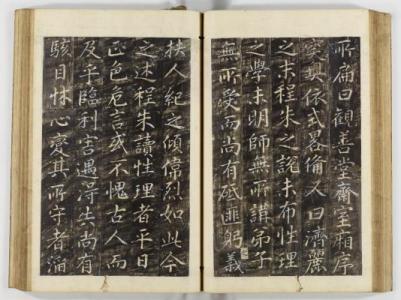 所扁曰觀善堂齋室廂序
室與依式畧備又曰濟麗
之末程朱之說未布性理
之學未明師無所講弟子
無所受而尚有砥匪躬義
扶人紀之傾偉烈如此今
之述程朱讀性理者平日
正色危言或不愧古人而
及乎臨利害遇得失尚有
駭目怵心變其所守者滔